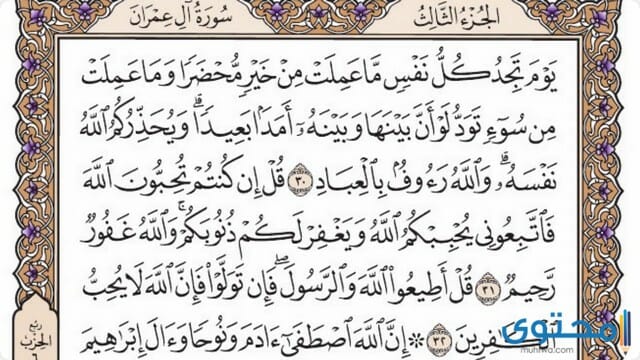 الجُزْءُ الثَّالِثُ
سُورَةُ آلِ عِمْرَانَ
يَوْمَ تَجِدُ كُلُّ نَفْسٍ مَّا عَمِلَتْ مِنْ خَيْرٍ مُّحْضَرًا وَمَا عَمِلَتْ
مِن سُوٓءٍ تَوَدُّ لَوْ أَنَّ بَيْنَهَا وَبَيْنَهُۥٓ أَمَدَۢا بَعِيدًاۗ وَيُحَذِّرُكُمُ ٱللَّهُ
نَفْسَهُۥۗ وَٱللَّهُ رَءُوفُۢ بِٱلْعِبَادِ ٣٠ قُلْ إِن كُنتُمْ تُحِبُّونَ ٱللَّهَ
فَٱتَّبِعُونِي يُحْبِبْكُمُ ٱللَّهُ وَيَغْفِرْ لَكُمْ ذُنُوبَكُمْۚ وَٱللَّهُ غَفُورٌ
رَّحِيمٌ ٣١ قُلْ أَطِيعُوا۟ ٱللَّهَ وَٱلرَّسُولَۖ فَإِن تَوَلَّوْا۟ فَإِنَّ ٱللَّهَ لَا يُحِبُّ
ٱلْكَٰفِرِينَ ٣٢ ۞ إِنَّ ٱللَّهَ ٱصْطَفَىٰٓ ءَادَمَ وَنُوحًا وَءَالَ إِبْرَٰهِيمَ
ربع
الحزب
٦
محتوى
muhtwa.com